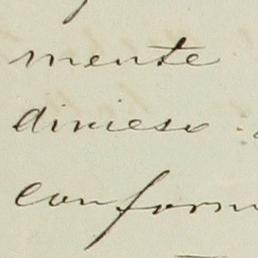 mente
diviesv
conform